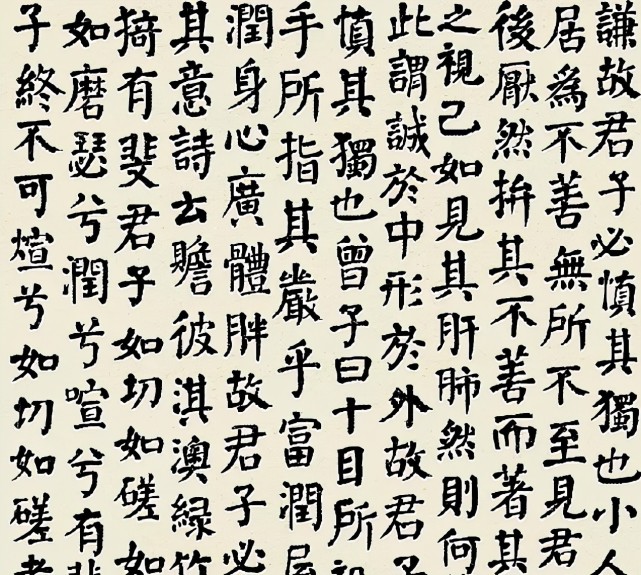 謙故君子必慎其獨也小人
居為不善無所不至見君
後厭然拚其不善而著其
之視己如見其肝肺然則何
此謂誠於中形於外故君子
慎其獨也曾子曰十目所
手所指其嚴乎富潤屋
潤身心廣體胖故君子必
其意詩云贍彼淇澳綠竹
猗有斐君子如切如磋如
如磨瑟兮潤兮喧兮有斐
子終不可煊兮如切如磋者